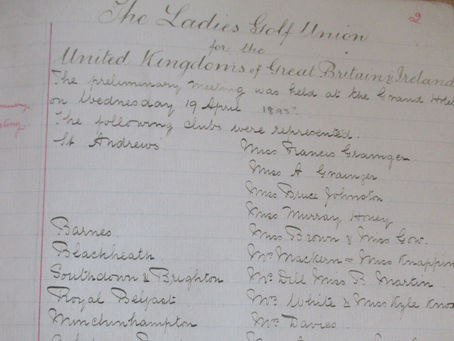 2
The Ladies Golf Union
for the
United Kingdoms of Great Britain & Ireland
The preliminary meeting was held at the Grand Hotel
on Wednesday 19 April 1893.
The following clubs were represented.
St Andrews Miss Francis Grainger
Miss A Grainger
Miss Bruce Johnston
Miss Murray Honey
Barnes. Miss Brown & Miss Gow.
Blackheath Mrs Mackern = Miss Knapping
Southdown & Brighton Mr Dill Miss B. Martin.
Royal Belfast Mrs White & Miss Kyle Knox
Minchinhampton Mrs Davies.